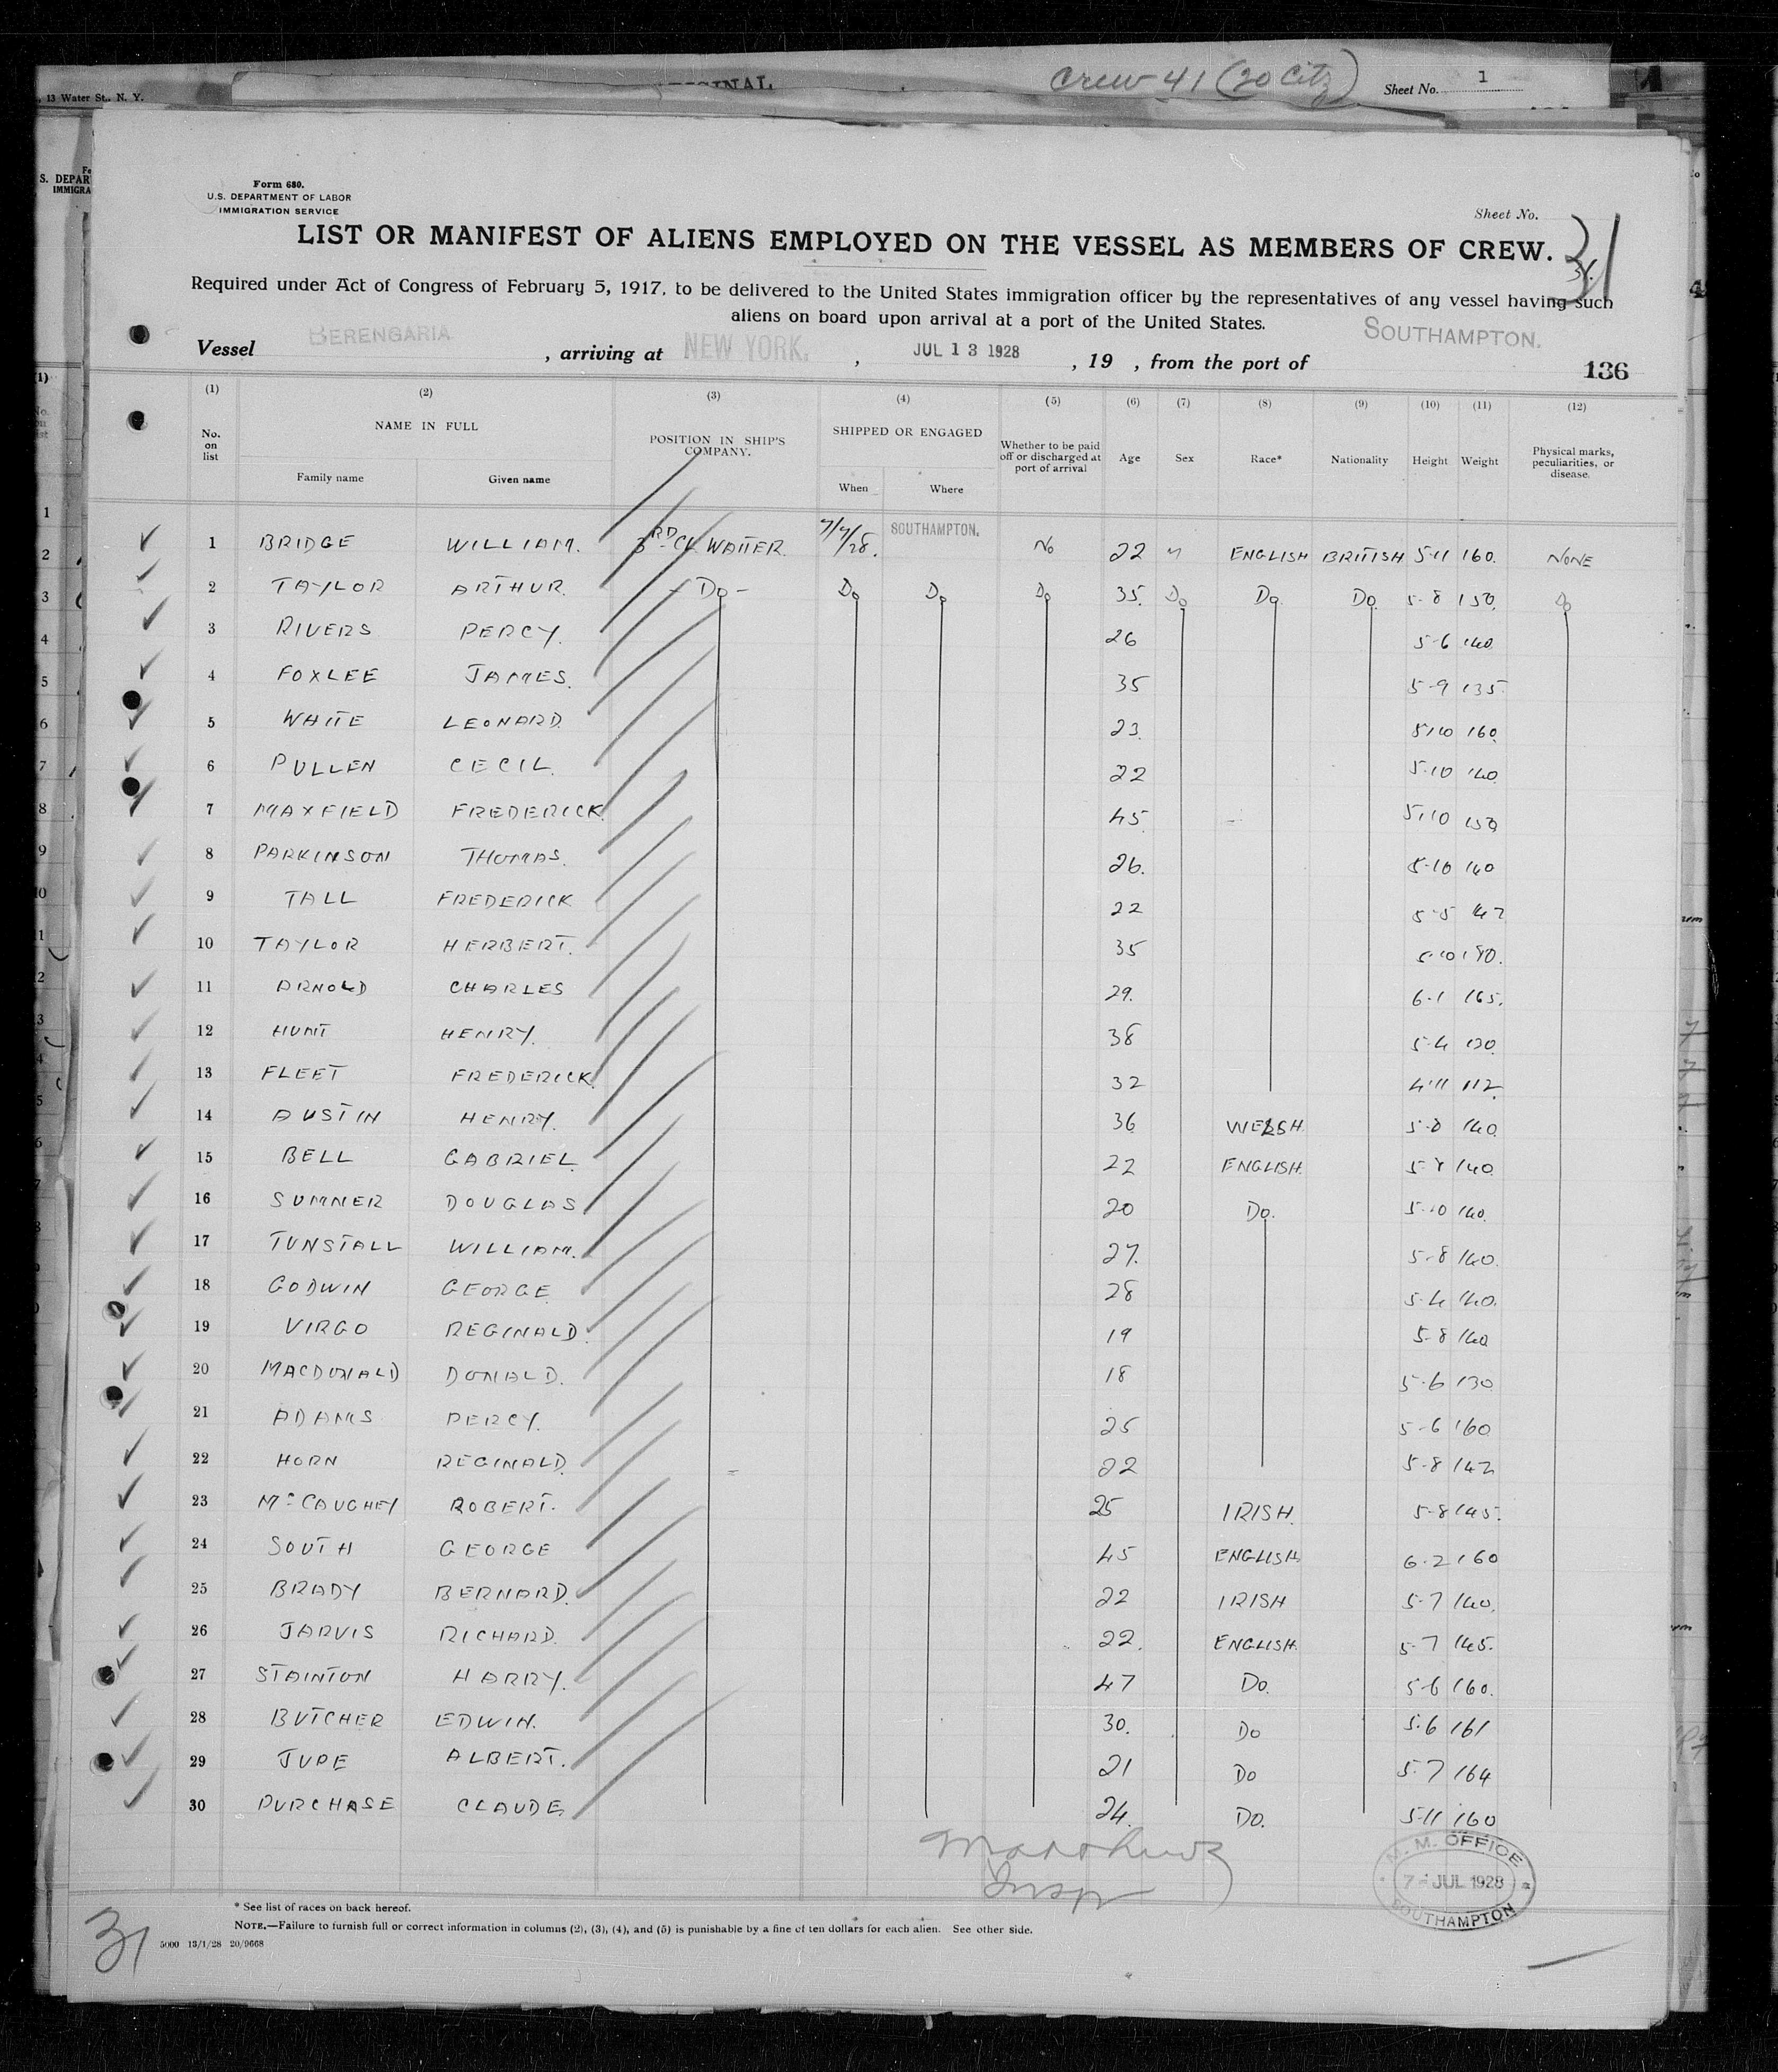 13 Water St., N. Y.
Crew 41 (20 Citz)
Sheet No. 1
Form 680.
U.S. DEPARTMENT OF LABOR
IMMIGRATION SERVICE
Sheet No. 31
LIST OR MANIFEST OF ALIENS EMPLOYED ON THE VESSEL AS MEMBERS OF CREW.
Required under Act of Congress of February 5, 1917, to be delivered to the United States immigration officer by the representatives of any vessel having such
aliens on board upon arrival at a port of the United States.
Vessel BERENGARIA, arriving at NEW YORK, JUL 13 1928, 19 , from the port of SOUTHAMPTON.
136
(1) (2) (3) (4) (5) (6) (7) (8) (9) (10) (11) (12)
No. on list NAME IN FULL POSITION IN SHIP'S COMPANY. SHIPPED OR ENGAGED Whether to be paid off or discharged at port of arrival Age Sex Race* Nationality Height Weight Physical marks, peculiarities, or disease.
Family name Given name When Where
1 BRIDGE WILLIAM. 3RD CL WAITER. 7/7/28. SOUTHAMPTON. No 22 M ENGLISH BRITISH 5-11 160. NONE
2 TAYLOR ARTHUR. - Do - Do Do Do 35. Do Do. Do. 5-8 150. Do
3 RIVERS PERCY. 26 5-6 140.
4 FOXLEE JAMES. 35 5-9 135.
5 WHITE LEONARD. 23. 5,10 160.
6 PULLEN CECIL. 22 5-10 140.
7 MAXFIELD FREDERICK. 45. 5,10 150
8 PARKINSON THOMAS. 26. 5-10 140
9 TALL FREDERICK 22 5-5 147
10 TAYLOR HERBERT. 35 5-10 180.
11 ARNOLD CHARLES 29. 6-1 165.
12 HUNT HENRY. 38 5-4 130.
13 FLEET FREDERICK. 32 4-11 112.
14 AUSTIN HENRY. 36 WELSH. 5-8 140.
15 BELL GABRIEL. 22 ENGLISH. 5-8 140.
16 SUMNER DOUGLAS. 20 Do. 5-10 140.
17 TUNSTALL WILLIAM. 27. 5-8 140.
18 GODWIN GEORGE. 28 5-4 140.
19 VIRGO REGINALD. 19 5-8 140
20 MACDONALD DONALD. 18 5-6 130
21 ADAMS PERCY. 25 5-6 160
22 HORN REGINALD. 22 5-8 142
23 McCAUGHEY ROBERT. 25 IRISH. 5-8 145.
24 SOUTH GEORGE 45 ENGLISH. 6-2 160
25 BRADY BERNARD. 22 IRISH 5-7 140.
26 JARVIS RICHARD. 22. ENGLISH. 5-7 145.
27 STAINTON HARRY. 47 Do. 5-6 160.
28 BUTCHER EDWIN. 30. Do 5-6 161
29 JUPE ALBERT. 21 Do 5-7 164
30 PURCHASE CLAUDE. 24. Do. 5-11 160
Insp
M. M. OFFICE
7 - JUL 1928
SOUTHAMPTON
* See list of races on back hereof.
NOTE.—Failure to furnish full or correct information in columns (2), (3), (4), and (5) is punishable by a fine of ten dollars for each alien. See other side.
5000 13/1/28 20/9668
31